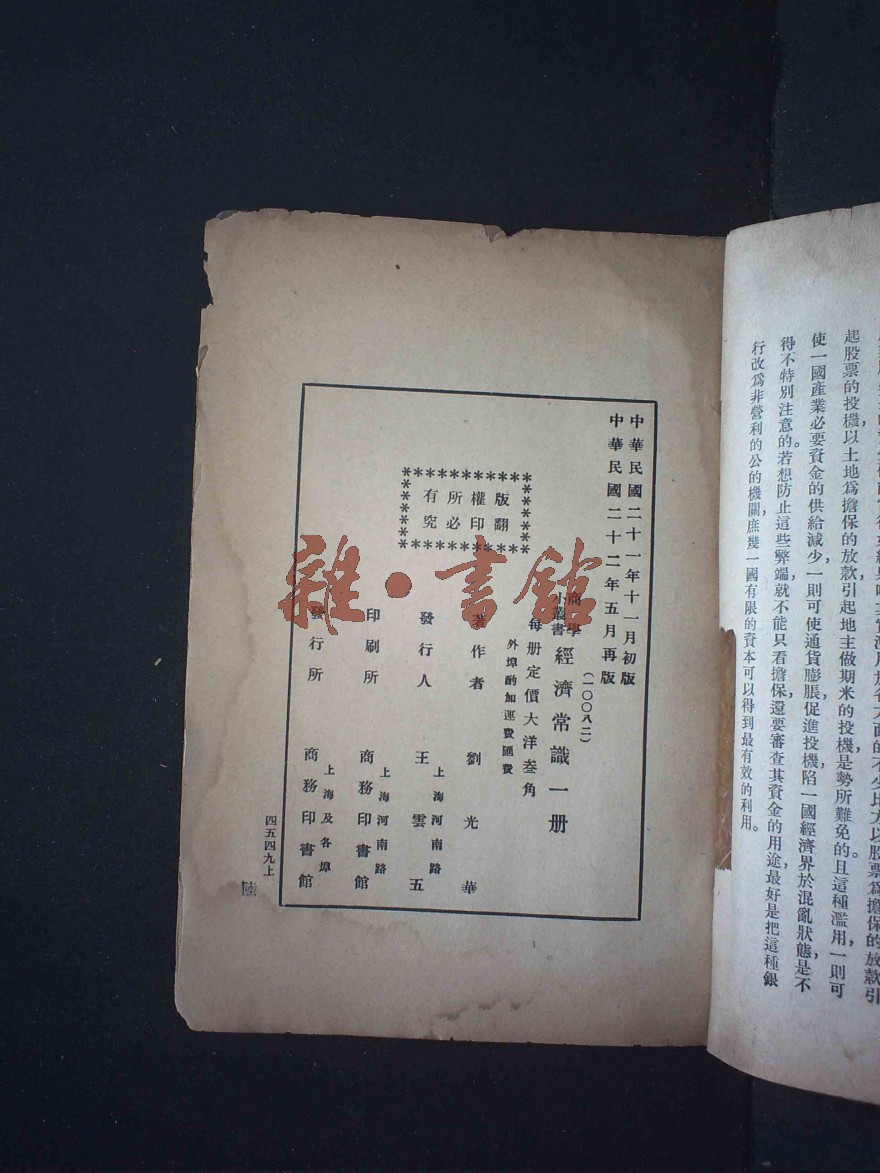 起股票的投機，以土地爲擔保的放款引起地主做期米的投機，是勢所難免的。且這種濫用，一則可
使一國產業必要資金的供給減少，一則可使通貨膨脹，促進投機，陷一國經濟界於混亂狀態，是不
得不特別注意的。若想防止這些弊端，就不能只看擔保，還要審查其資金的用途，最好是把這種銀
行改爲非營利的公的機關，庶幾一國有限的資本可以得到最有效的利用。
中華民國二十一年十一月初版
中華民國二十二年五月再版
（一〇〇八二）
商學
小叢書
經濟常識一册
每册定價大洋叁角
外埠酌加運費匯費
版權所有
翻印必究
著作者 劉光華
發行人 王雲五
上海河南路
印刷所 商務印書館
上海河南路
發行所 商務印書館
上海及各埠
四五四九上
陸
雜·書館